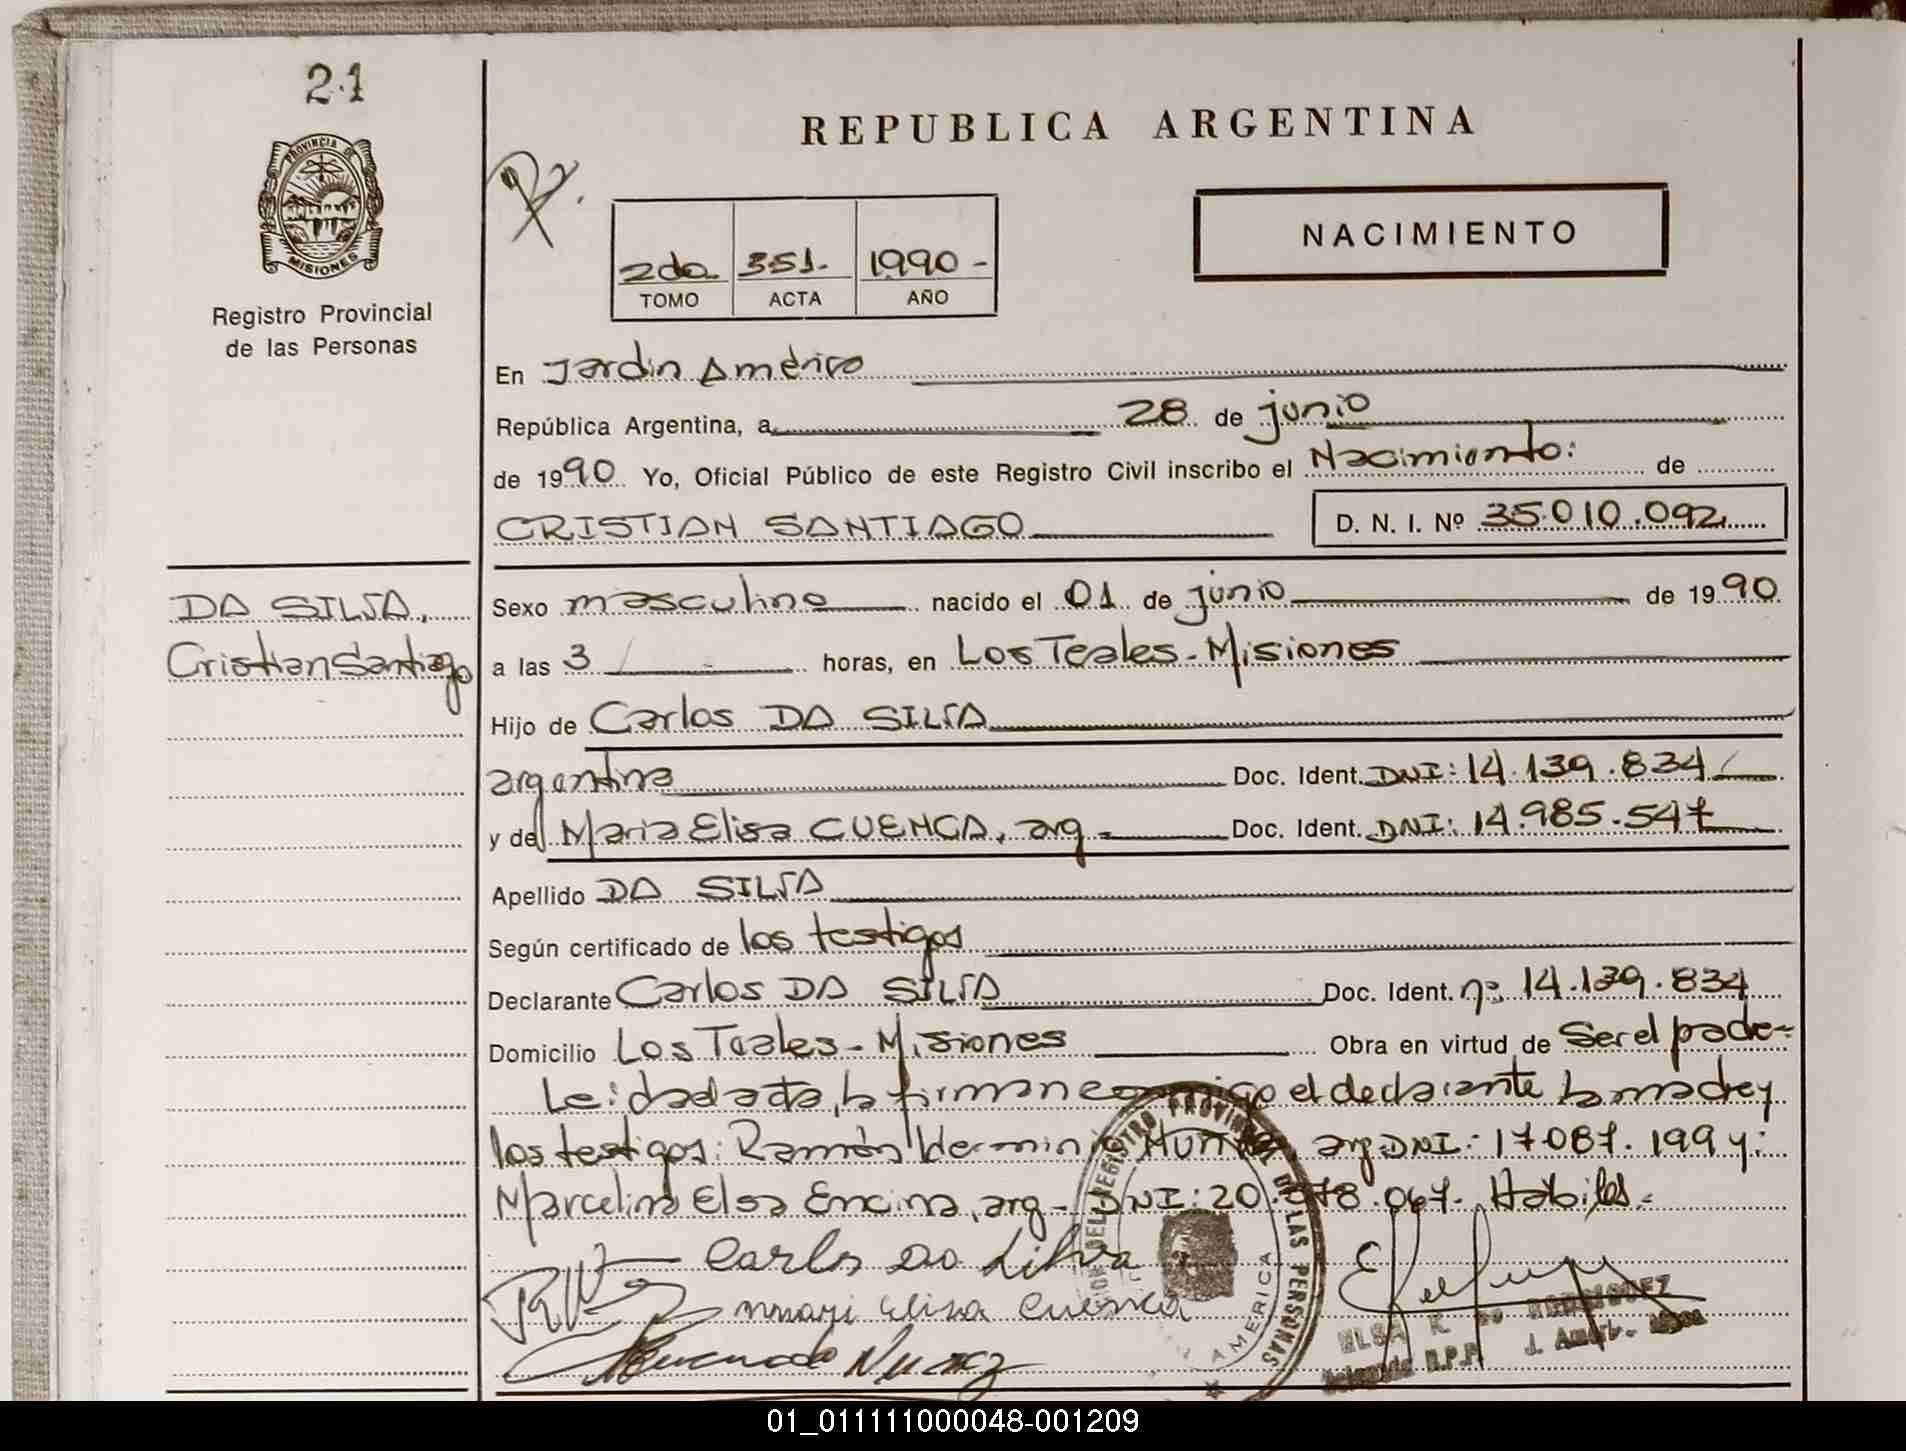 21
PROVINCIA DE
MISIONES
Registro Provincial
de las Personas
REPUBLICA ARGENTINA
NACIMIENTO
2do. 351. 1990 -
TOMO ACTA AÑO
En Jardin América
República Argentina, a 28 de junio
de 1990 Yo, Oficial Público de este Registro Civil inscribo el Nacimiento: de
CRISTIAN SANTIAGO D. N. I. Nº 35.010.092
DA SILVA,
Cristian Santiago
Sexo masculino nacido el 01 de junio de 1990
a las 3 horas, en Los Teales - Misiones
Hijo de Carlos DA SILVA
argentina Doc. Ident. DNI: 14.139.834
y de Maria Elisa CUENCA, arg - Doc. Ident. DNI: 14.985.547
Apellido DA SILVA
Según certificado de los testigos
Declarante Carlos DA SILVA Doc. Ident. nº 14.139.834
Domicilio Los Teales - Misiones Obra en virtud de Ser el padre -
Leida el acta, la firman conmigo el declarante la madre y
los testigos: Ramón Herminio arg DNI: 17.087.199 y:
Marcelina Elsa Encina, arg - DNI: 20.978.067. Habiles.
Carlos Da Silva
Elisa Cuenca
Nunez
REGISTRO PROVINCIAL DE LAS PERSONAS
AMERICA
ELSA K. de
J. Amér.
01_011111000048-001209